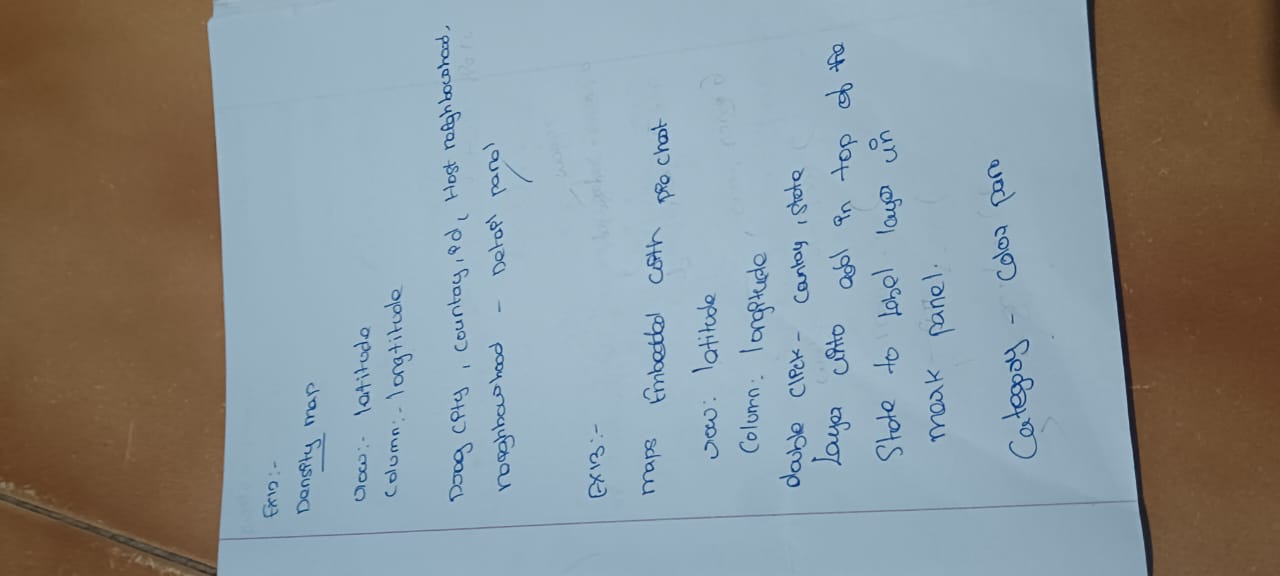 Ex12:-
Density map
row:- latitude
column:- longtitude
Drag city, country, id, Host neighbourhood,
neighbourhood - Detail panel
Ex13:-
maps Embedded with pie chart
row: latitude
column: longitude
double click - country, state
Layer into add in top of the
State to label layer in
mark panel.
Category - color pane